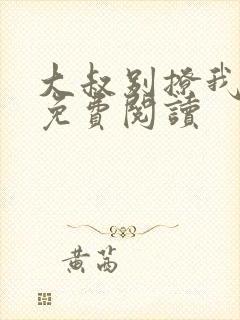 大叔别撩我
免費閱讀
黄苒